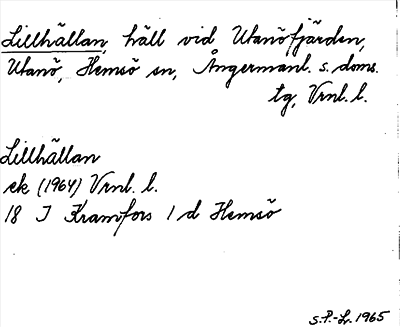 Lillhällan, häll vid Utanöfjärden,
Utanö, Hemsö sn, Ångermanl. s. doms.
tg, Vrnl. l.
Lillhällan
ek (1964) Vrnl. l.
18 I Kramfors 1 d Hemsö
S.P.-Lr. 1965